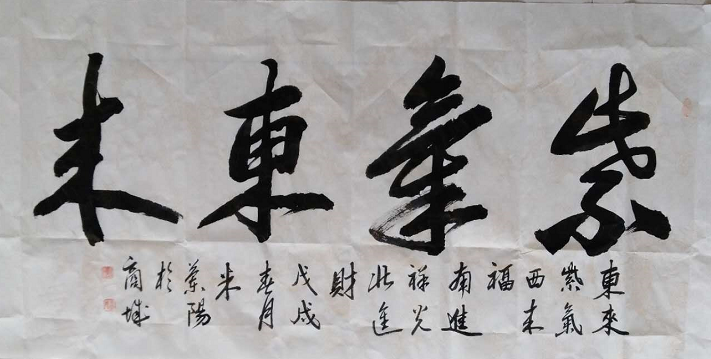 紫氣東来
東來紫氣西来福南進祥光北進財戊戌春月米陽於商城